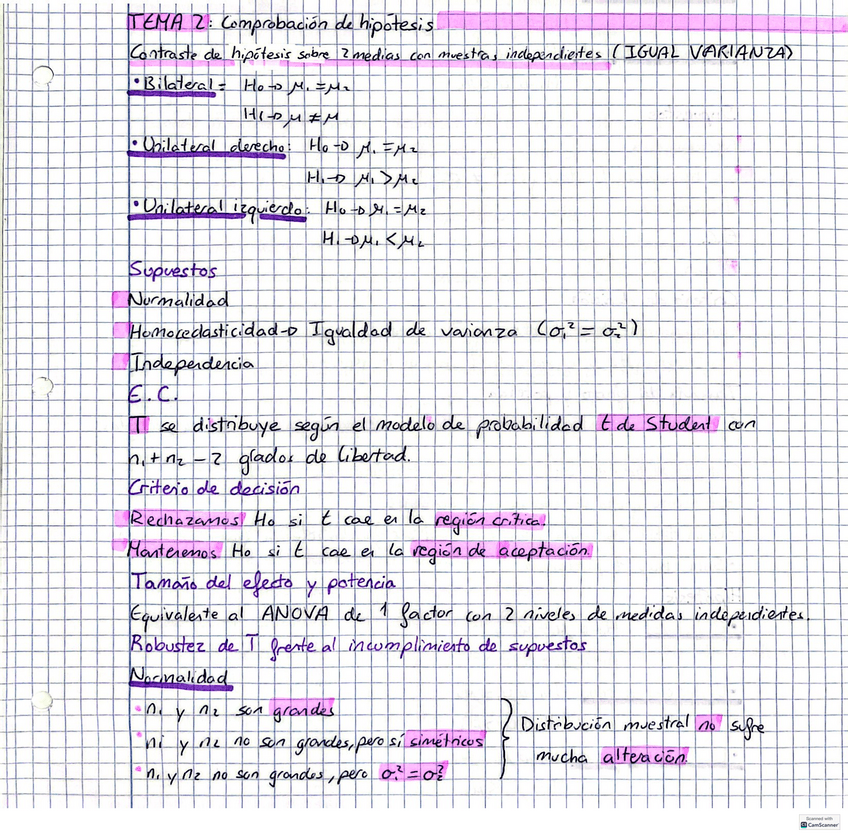 TEMA 2: Comprobación de hipótesis
Contraste de hipótesis sobre 2 medias con muestras independientes (IGUAL VARIANZA)
• Bilateral = H₀ → μ₁ = μ₂
H₁ → μ ≠ μ
• Unilateral derecho: H₀ → μ₁ = μ₂
H₁ → μ₁ > μ₂
• Unilateral izquierdo: H₀ → μ₁ = μ₂
H₁ → μ₁ < μ₂
Supuestos
Normalidad
Homocedasticidad → Igualdad de varianza (σ₁² = σ₂²)
Independencia
E.C.
T se distribuye según el modelo de probabilidad t de Student con
n₁ + n₂ - 2 grados de libertad.
Criterio de decisión
Rechazamos H₀ si t cae en la región crítica.
Mantenemos H₀ si t cae en la región de aceptación.
Tamaño del efecto y potencia
Equivalente al ANOVA de 1 factor con 2 niveles de medidas independientes.
Robustez de T frente al incumplimiento de supuestos
Normalidad
• n₁ y n₂ son grandes
• n₁ y n₂ no son grandes, pero sí simétricos
• n₁ y n₂ no son grandes, pero σ₁² = σ₂²
Distribución muestral no sufre
mucha alteración.
Scanned with
CS CamScanner